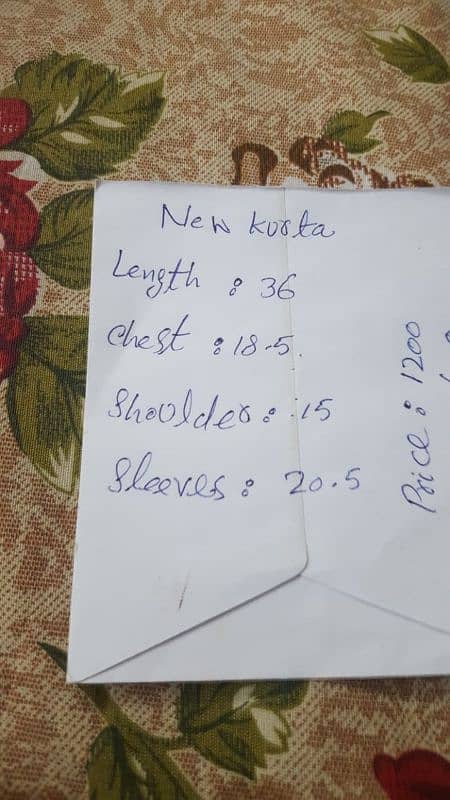 New kurta
Length : 36
Chest : 18.5.
Shoulder : 15
Sleeves : 20.5
Price : 1200